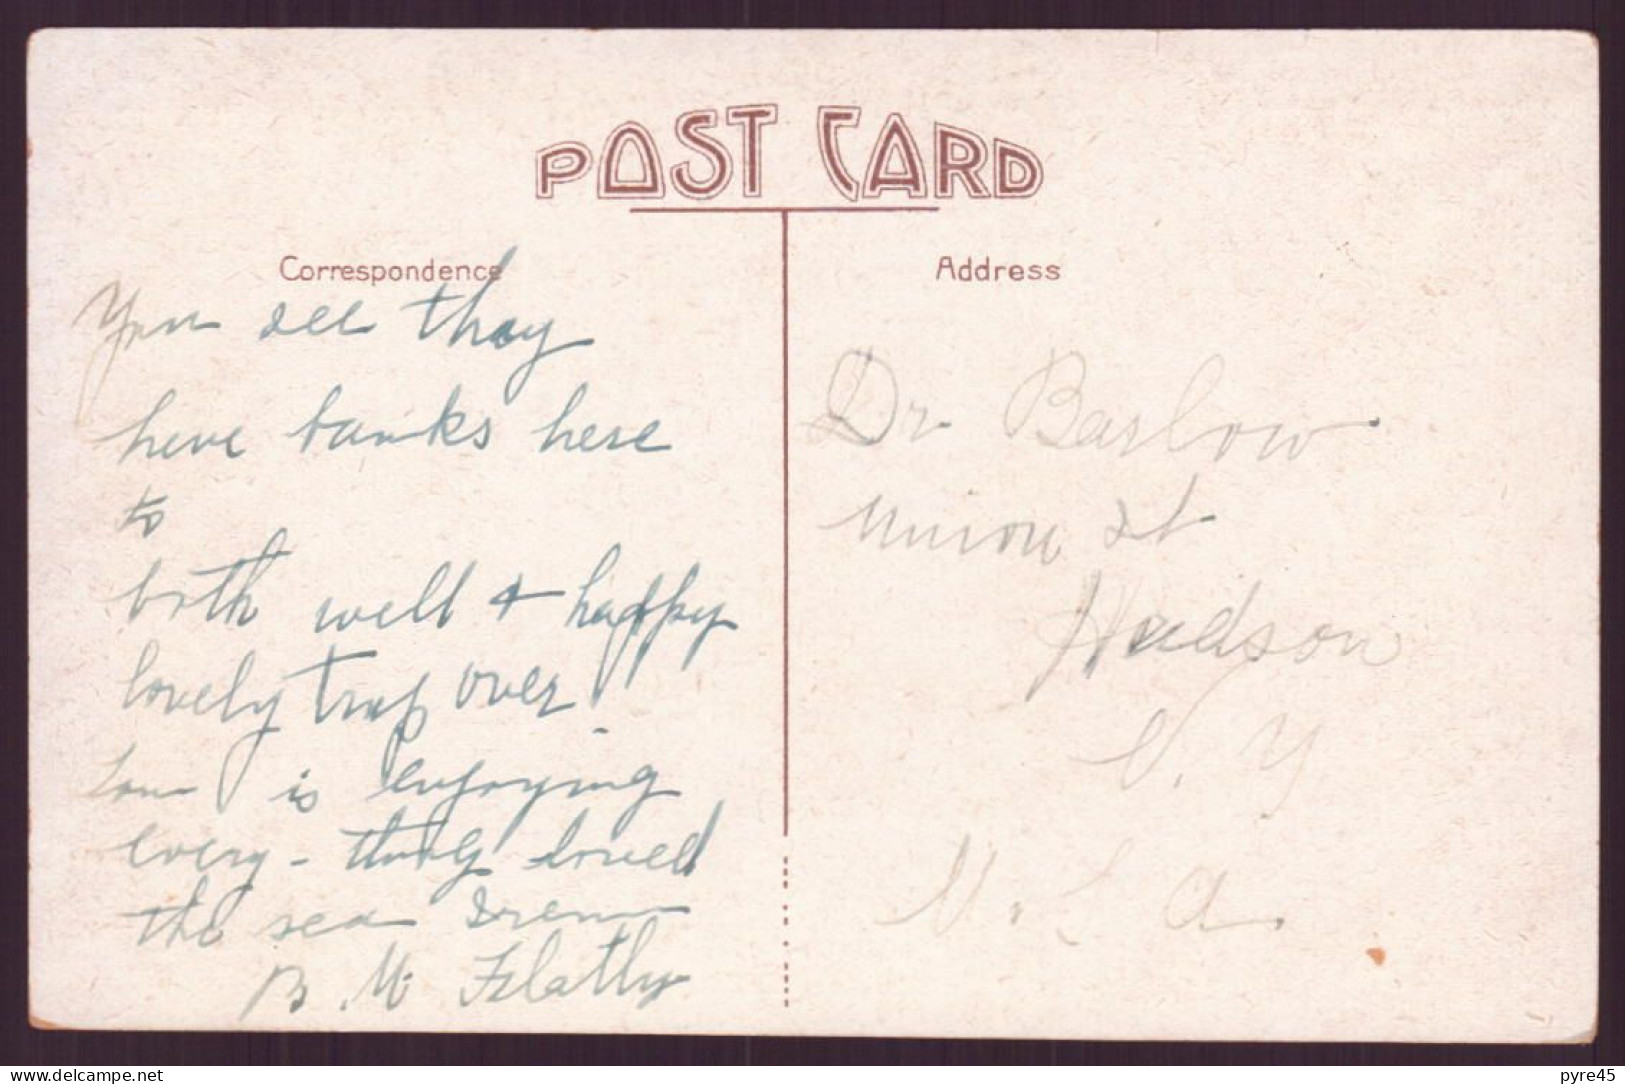 POST CARD
Correspondence
Address
You see they
have banks here
to
both well & happy
lovely trip over
is enjoying
every-thing loved
the sea
B. M.
Dr Barlow
Union St
Hudson
N. Y
U. S. A.
www.delcampe.net
pyre45